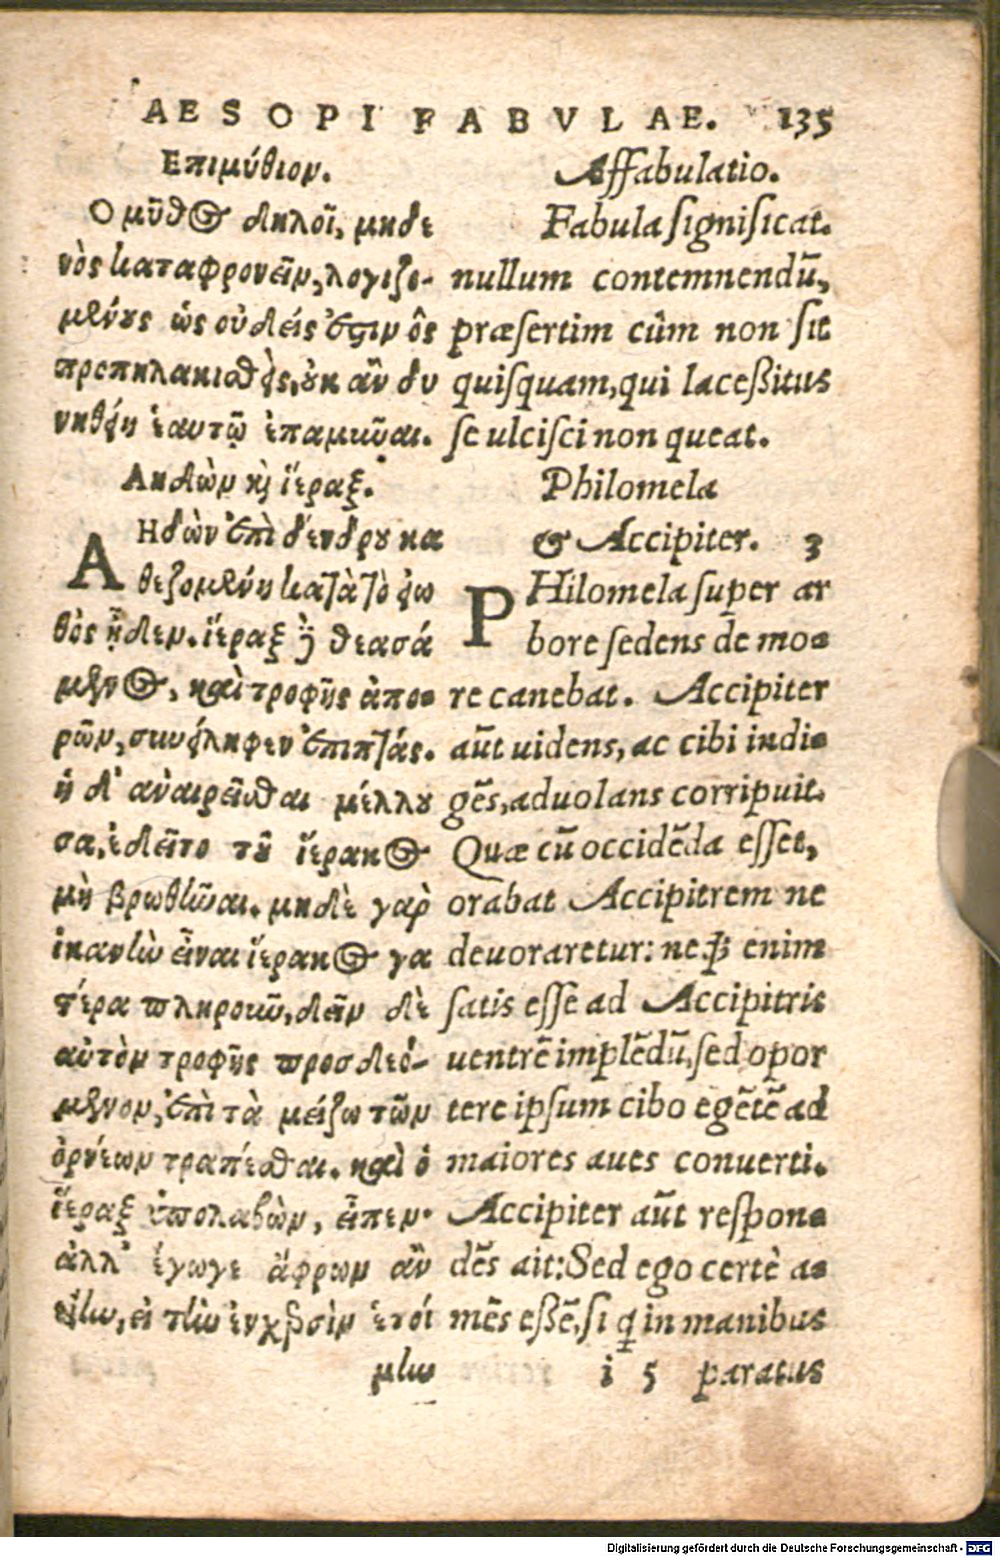 AESOPI FABVLAE. 135
Επιμύθιον.
Ο μῦθος δηλοῖ, μηδε
νὸς καταφρονεῖν, λογιζο-
μένους ὡς οὐδείς ἐστιν ὃς
προπηλακισθείς, οὐκ ἂν δυ
νηθείη ἑαυτῷ ἐπαμῦναι.
Αηδὼν καὶ ἵεραξ.
ΑΗδὼν ἐπὶ δένδρου κα
θεζομένη κατὰ τὸ εἰω
θὸς ᾖδεν. ἵεραξ δὲ θεασά
μενος, καὶ τροφῆς ἀπο-
ρῶν, συνείληφεν ἐπιπτάς.
ἡ δ' ἀναιρεῖσθαι μέλλου
σα, ἐδεῖτο τοῦ ἵερακος
μὴ βρωθῆναι. μηδὲ γὰρ
ἱκανὴν εἶναι ἵερακος γα
στέρα πληροῦν, δεῖν δὲ
αὐτὸν τροφῆς προσδεό-
μενον, ἐπὶ τὰ μείζω τῶν
ὀρνέων τραπέσθαι. καὶ ὁ
ἵεραξ ὑπολαβὼν, εἶπεν·
ἀλλ' ἔγωγε ἄφρων ἂν
εἴην, εἰ τὴν ἐν χερσὶν ἑτοί
μην
Affabulatio.
Fabula significat.
nullum contemnendū,
præsertim cùm non sit
quisquam, qui lacessitus
se ulcisci non queat.
Philomela
& Accipiter. 3
PHilomela super ar
bore sedens de mo-
re canebat. Accipiter
aūt uidens, ac cibi indi-
gēs, aduolans corripuit.
Quæ cū occidēda esset,
orabat Accipitrem ne
deuoraretur: neq; enim
satis esse ad Accipitris
uentrē implēdū, sed opor
tere ipsum cibo egētē ad
maiores aues conuerti.
Accipiter aūt respon-
dēs ait: Sed ego certè a-
mēs essē, si q in manibus
i 5 paratus
Digitalisierung gefördert durch die Deutsche Forschungsgemeinschaft - DFG